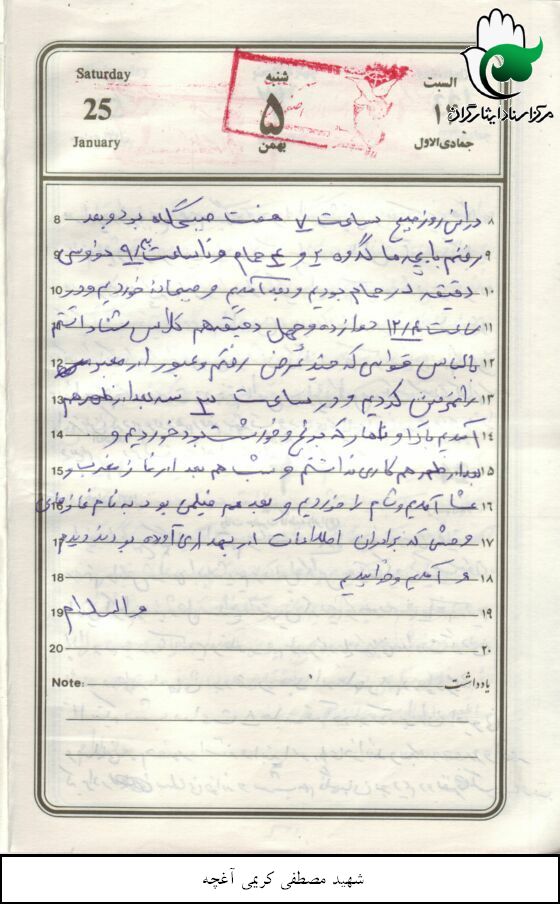 مرکز اسناد ایثارگران
Saturday
25
January
شنبه
۵
بهمن
السبت
جمادی‌الاول
8 در این روز صبح ساعت ۷ هفت صبحگاه بود و بعد ۸
9 رفتم با بچه‌ها گروه و حمام و تا ساعت ۹ و سی ۹
10 دقیقه در حمام بودیم و بعد آمدیم و صبحانه خوردیم و در ۱۰
ساعت ۱۲/۴۰ دوازده و چهل دقیقه هم کلاس شنا داشتم ۱۱
12 با لباس غواصی که چند عرض رفتم و عبور از ۱۲
13 را تمرین کردیم و در ساعت ۳ سه بعد از ظهر هم ۱۳
14 آمدیم و ناهار که مرغ و خورشت بود خوردیم و ۱۴
15 بعد از ظهر هم کاری نداشتم و شب هم بعد از نماز مغرب و ۱۵
عشا آمدیم و شام را خوردیم و بعد هم فیلمی بود به نام ۱۶
17 که برادران اطلاعات آورده بودند دیدیم ۱۷
18 و آمدیم و خوابیدیم ۱۸
19 والسلام ۱۹
20 ۲۰
Note: یادداشت
شهید مصطفی کریمی آغچه